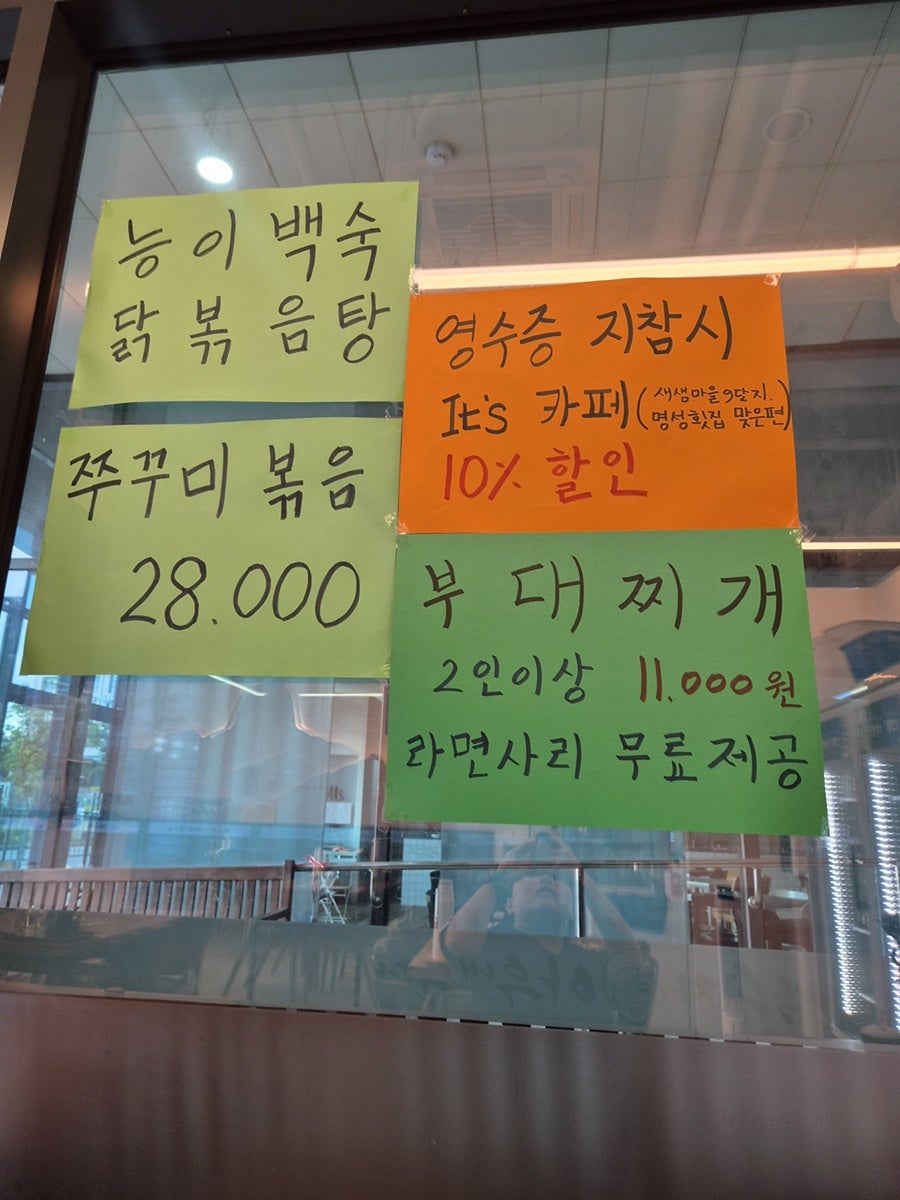 능이백숙
닭볶음탕
쭈꾸미 볶음
28.000
영수증 지참시
It's 카페(새샘마을9단지.
명성횟집 맞은편)
10% 할인
부대찌개
2인이상 11.000원
라면사리 무료제공